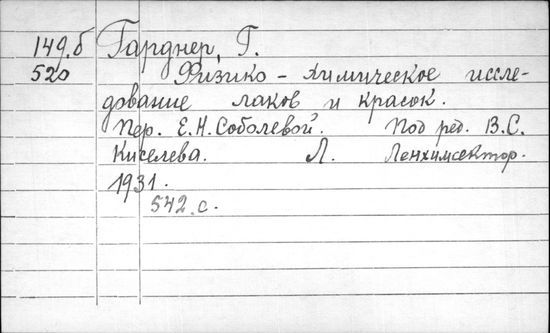 149.б Гарднер, Г.
520 Физико-химическое иссле-
дование лаков и красок.
Пер. Е.Н.Соболевой. Под ред. В.С.
Киселева. Л. Ленхимсектор.
1931.
542.с.